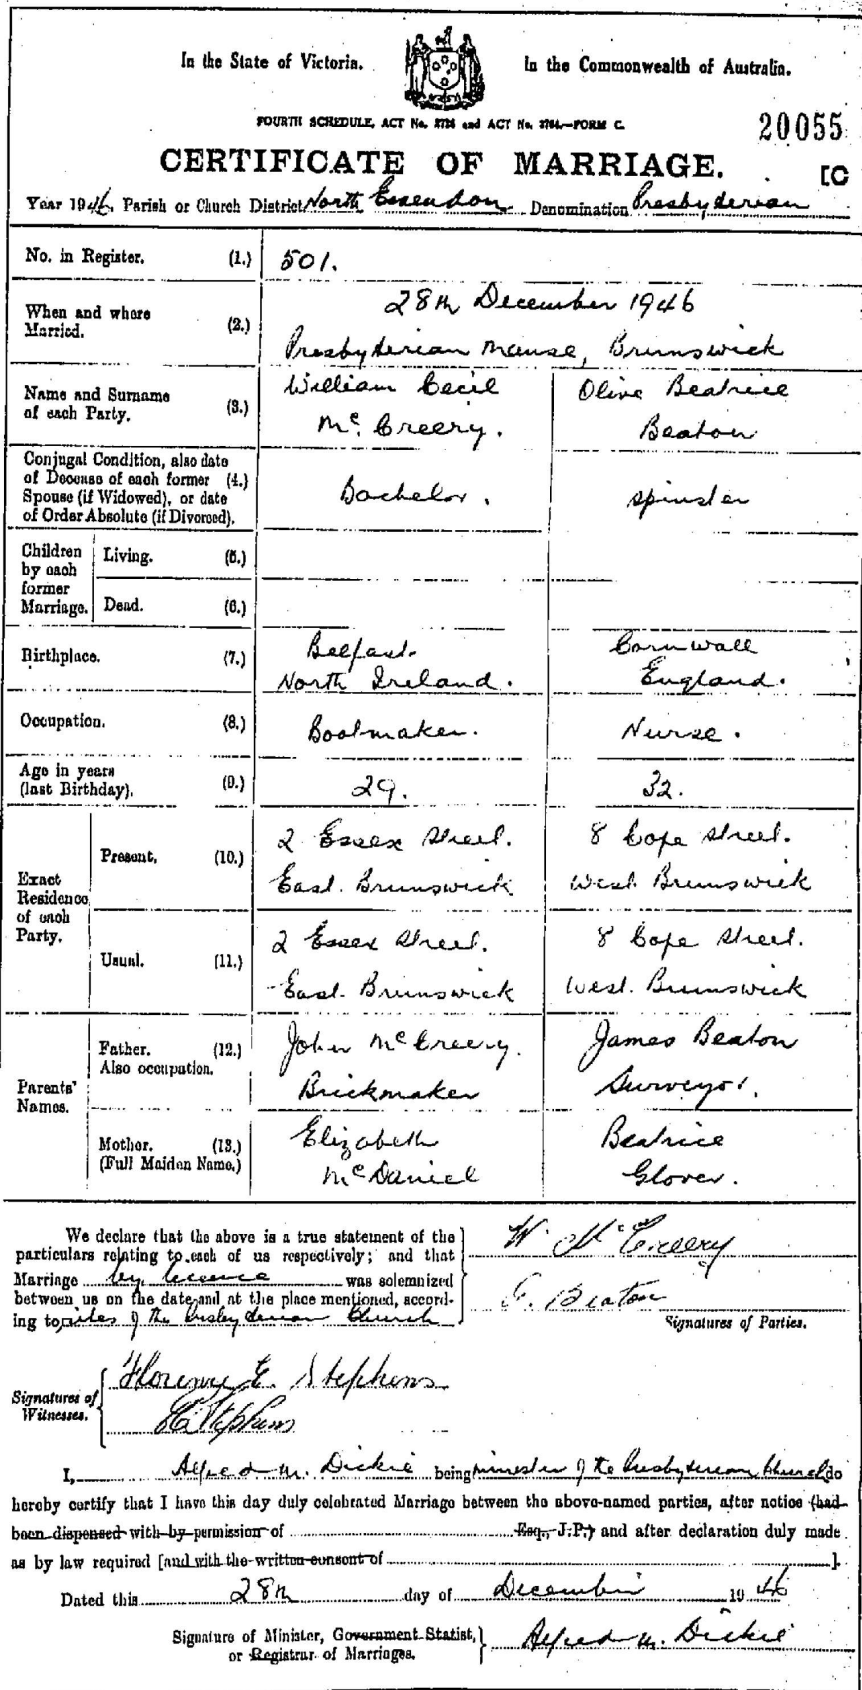 In the State of Victoria. In the Commonwealth of Australia.
FOURTH SCHEDULE, ACT No. 3726 and ACT No. 3764.—FORM C.
20055
CERTIFICATE OF MARRIAGE. [C
Year 1946. Parish or Church District North Essendon Denomination Presbyterian
No. in Register. (1.) 501.
When and where Married. (2.) 28th December 1946
Presbyterian Manse, Brunswick
Name and Surname of each Party. (3.) William Cecil McCreery. Olive Beatrice Beaton
Conjugal Condition, also date
of Decease of each former (4.)
Spouse (if Widowed), or date
of Order Absolute (if Divorced).
Bachelor. spinster
Children by each former Marriage.
Living. (5.)
Dead. (6.)
Birthplace. (7.) Belfast. North Ireland. Cornwall England.
Occupation. (8.) Bootmaker. Nurse.
Age in years (last Birthday). (9.) 29. 32.
Exact Residence of each Party.
Present. (10.) 2 Essex Street. East. Brunswick 8 Cope Street. West. Brunswick
Usual. (11.) 2 Essex Street. East. Brunswick 8 Cope Street. West. Brunswick
Parents' Names.
Father. (12.) Also occupation. John McCreery. Brickmaker James Beaton Surveyor.
Mother. (13.) (Full Maiden Name.) Elizabeth McDaniel Beatrice Glover.
We declare that the above is a true statement of the
particulars relating to each of us respectively; and that
Marriage by licence was solemnized
between us on the date and at the place mentioned, accord-
ing to rites of the Presbyterian Church
W. McCreery
Beaton
Signatures of Parties.
Signatures of Witnesses.
Florence E. Stephens
Stephens
I, Alfred M. Dickie being minister of the Presbyterian Church do
hereby certify that I have this day duly celebrated Marriage between the above-named parties, after notice (had
been dispensed with by permission of Esq., J.P.) and after declaration duly made
as by law required [and with the written consent of ].
Dated this 28th day of December 1946
Signature of Minister, Government Statist,
or Registrar of Marriages.
Alfred M. Dickie